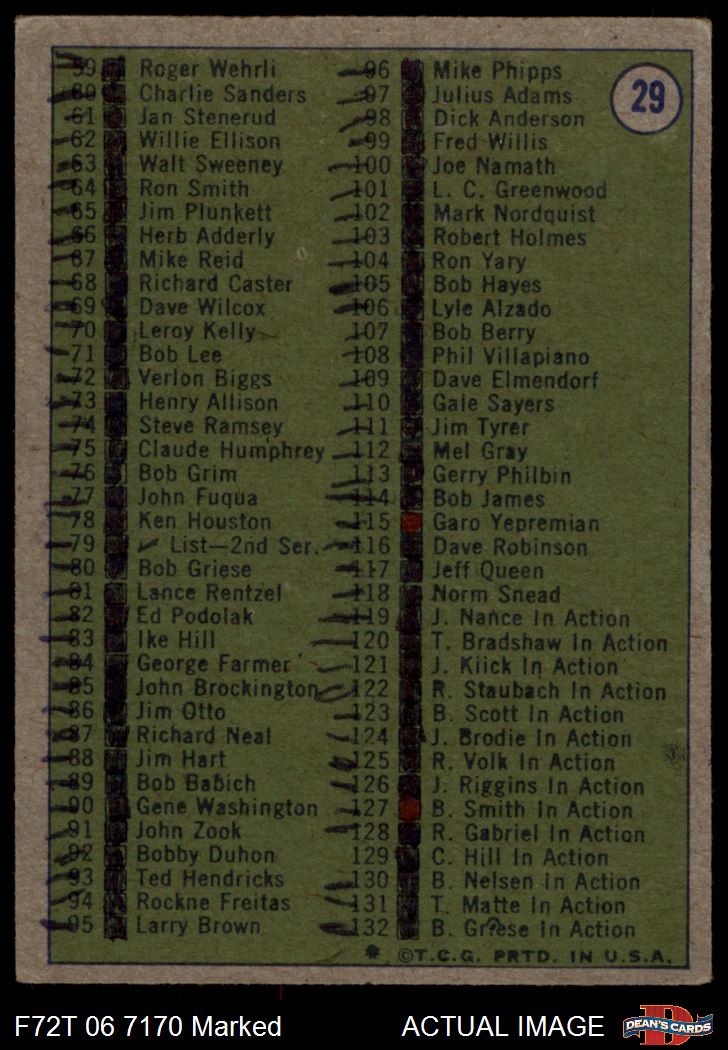 29
59 Roger Wehrli
60 Charlie Sanders
61 Jan Stenerud
62 Willie Ellison
63 Walt Sweeney
64 Ron Smith
65 Jim Plunkett
66 Herb Adderly
67 Mike Reid
68 Richard Caster
69 Dave Wilcox
70 Leroy Kelly
71 Bob Lee
72 Verlon Biggs
73 Henry Allison
74 Steve Ramsey
75 Claude Humphrey
76 Bob Grim
77 John Fuqua
78 Ken Houston
79 ✓ List—2nd Ser.
80 Bob Griese
81 Lance Rentzel
82 Ed Podolak
83 Ike Hill
84 George Farmer
85 John Brockington
86 Jim Otto
87 Richard Neal
88 Jim Hart
89 Bob Babich
90 Gene Washington
91 John Zook
92 Bobby Duhon
93 Ted Hendricks
94 Rockne Freitas
95 Larry Brown
96 Mike Phipps
97 Julius Adams
98 Dick Anderson
99 Fred Willis
100 Joe Namath
101 L. C. Greenwood
102 Mark Nordquist
103 Robert Holmes
104 Ron Yary
105 Bob Hayes
106 Lyle Alzado
107 Bob Berry
108 Phil Villapiano
109 Dave Elmendorf
110 Gale Sayers
111 Jim Tyrer
112 Mel Gray
113 Gerry Philbin
114 Bob James
115 Garo Yepremian
116 Dave Robinson
117 Jeff Queen
118 Norm Snead
119 J. Nance In Action
120 T. Bradshaw In Action
121 J. Kiick In Action
122 R. Staubach In Action
123 B. Scott In Action
124 J. Brodie In Action
125 R. Volk In Action
126 J. Riggins In Action
127 B. Smith In Action
128 R. Gabriel In Action
129 C. Hill In Action
130 B. Nelsen In Action
131 T. Matte In Action
132 B. Griese In Action
* ©T.C.G. PRTD. IN U.S.A.
F72T 06 7170 Marked ACTUAL IMAGE
DEAN'S CARDS